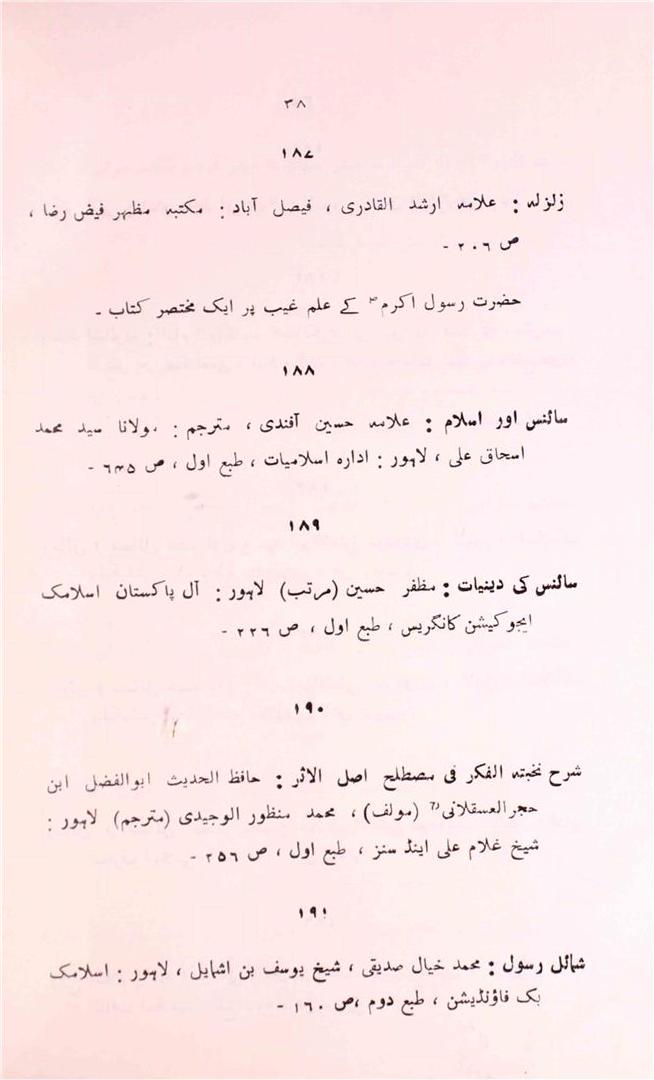 ۳۸
۱۸۷
زلزلہ : علامہ ارشد القادری ، فیصل آباد : مکتبہ مظہر فیض رضا ،
ص ۲۰۶ -
حضرت رسول اکرم ؐ کے علم غیب پر ایک مختصر کتاب -
۱۸۸
سائنس اور اسلام : علامہ حسین آفندی ، مترجم : مولانا سید محمد
اسحاق علی ، لاہور : ادارہ اسلامیات ، طبع اول ، ص ۶۴۵ -
۱۸۹
سائنس کی دینیات : مظفر حسین (مرتب) لاہور : آل پاکستان اسلامک
ایجوکیشن کانگریس ، طبع اول ، ص ۲۲۶ -
۱۹۰
شرح نخبتہ الفکر فی مصطلح اصل الاثر : حافظ الحدیث ابوالفضل ابن
حجر العسقلانی ؒ (مولف) ، محمد منظور الوجیدی (مترجم) لاہور :
شیخ غلام علی اینڈ سنز ، طبع اول ، ص ۲۵۶ -
۱۹۱
شمائل رسول : محمد خیال صدیقی ، شیخ یوسف بن اشمایل ، لاہور : اسلامک
بک فاؤنڈیشن ، طبع دوم ،ص ۱۶۰ -